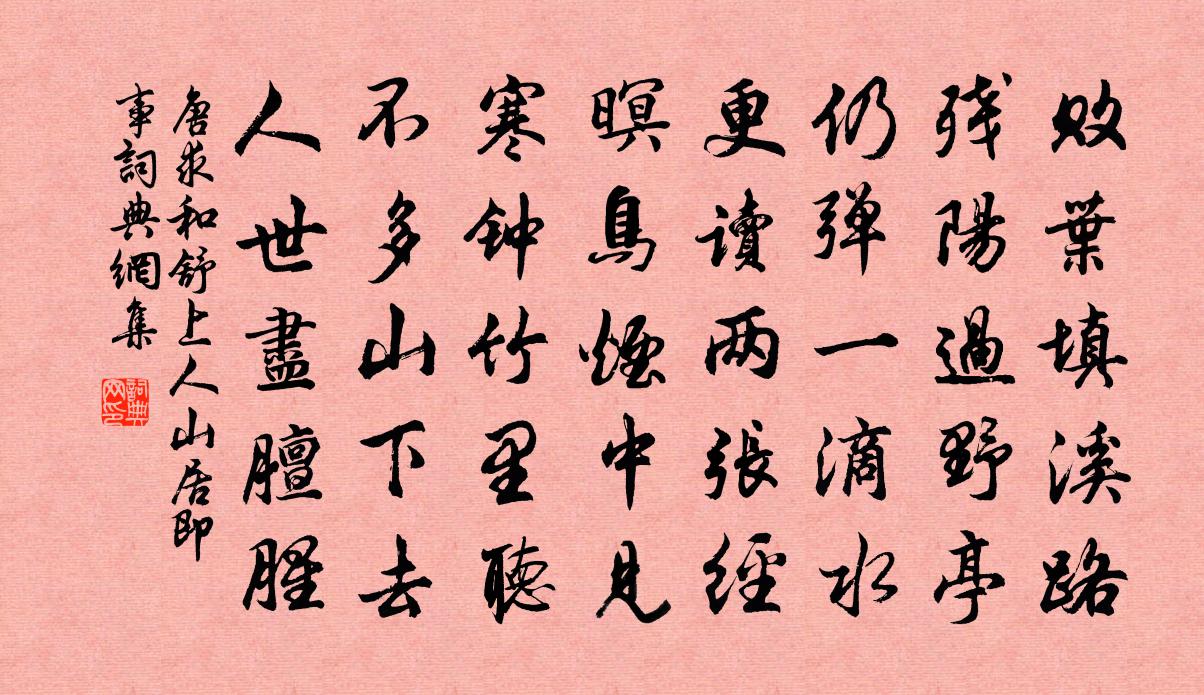 敗葉填溪路
残陽過野亭
仍弹一滴水
更讀两張經
暝鳥煙中見
寒钟竹里聽
不多山下去
人世盡膻腥
唐求和舒上人山居即
事詞典網集
詞典
网印